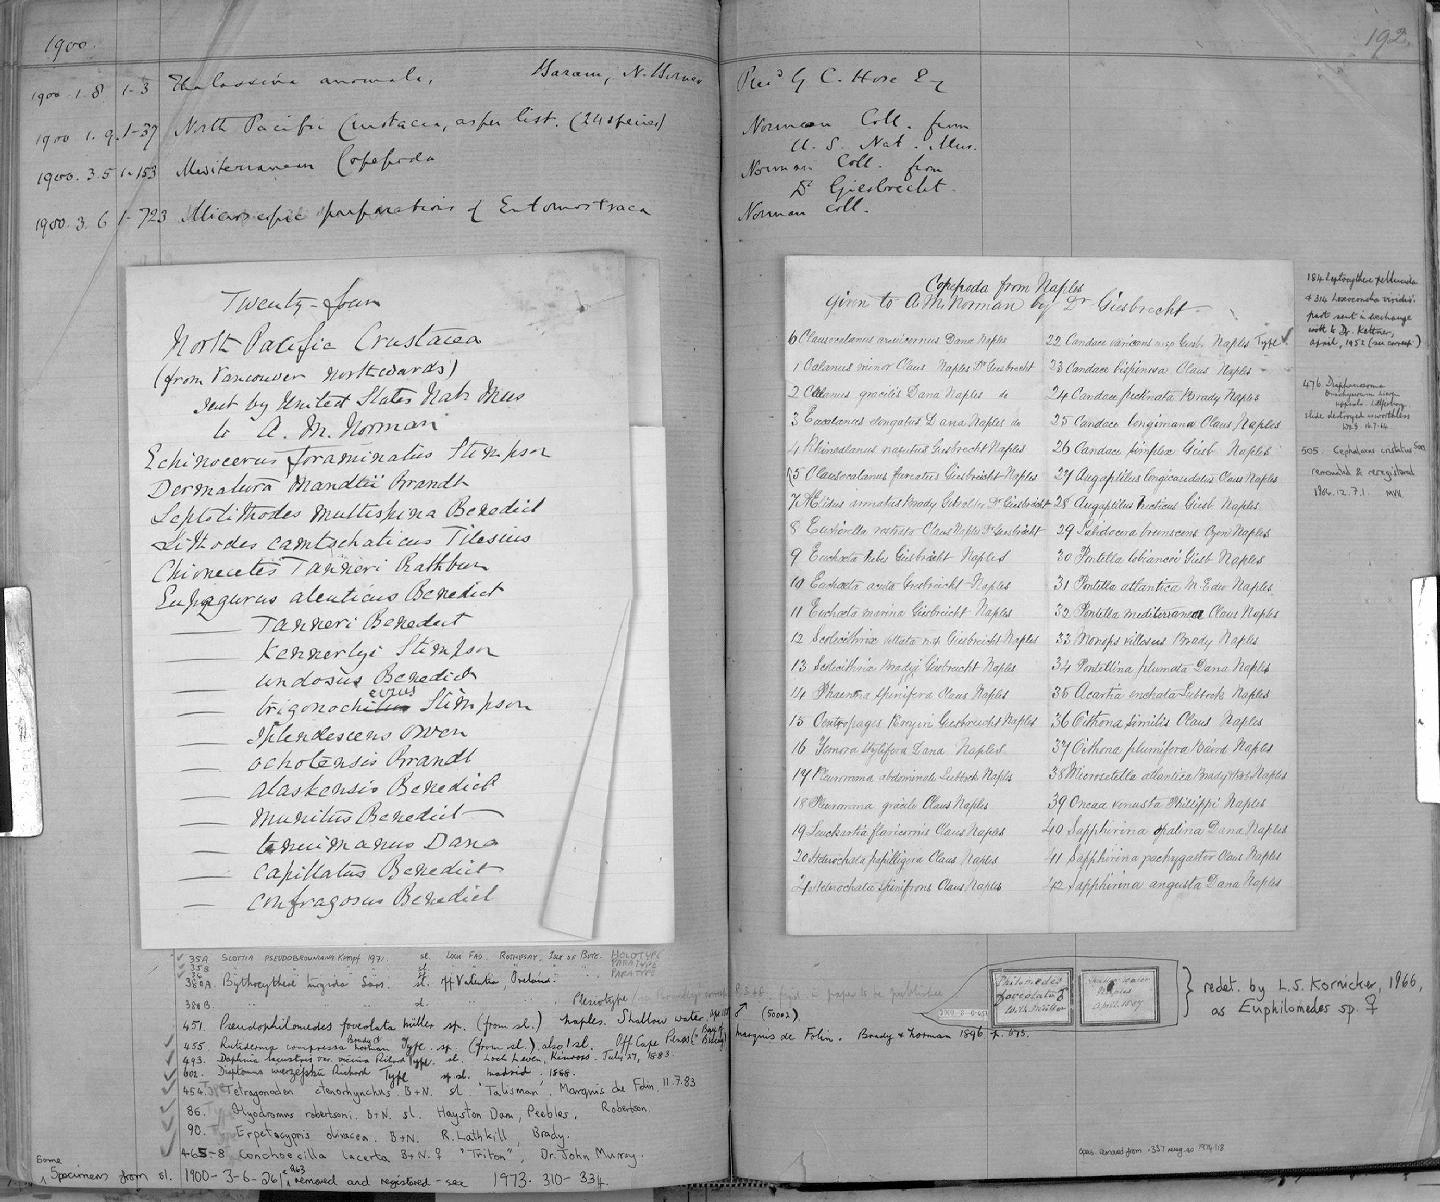 1900.
192.
1900 . 1 . 8 1-3 Thalassina anomala, N. Borneo
G C. Hose Esq
1900 1. 9. 1-37 North Pacific Crustacea, as per list. (24 species)
Norman Coll. from
U. S. Nat. Mus.
1900. 3. 5 1-153 Mediterranean Copepoda
Norman Coll. from
Dr Giesbrecht.
1900. 3. 6 1-723 Microscopic preparations of Entomostraca
Norman Coll.
Twenty-four
North Pacific Crustacea
(from Vancouver northwards)
sent by United States Nat. Mus
to A. M. Norman
Echinocerus foraminatus Stimpson
Dermatura Mandtii Brandt
Leptolithodes multispina Benedict
Lithodes camtschaticus Tilesius
Chionecetes Tanneri Rathbun
Eupagurus aleuticus Benedict
—— Tanneri Benedict
—— Kennerlyi Stimpson
—— undosus Benedict
—— trigonocheirus Stimpson
—— splendescens Owen
—— ochotensis Brandt
—— alaskensis Benedict
—— munitus Benedict
—— tenuimanus Dana
—— capillatus Benedict
—— confragosus Benedict
Copepoda from Naples
given to A. M. Norman by Dr Giesbrecht
6 Clausocalanus arcuicornus Dana Naples
1 Calanus minor Claus Naples Dr Giesbrecht
2 Calanus gracilis Dana Naples do
3 Eucalanus elongatus Dana Naples do
4 Rhincalanus nasutus Giesbrecht Naples
5 Clausocalanus furcatus Giesbrecht Naples
7 Ætidus armatus Brady Dr Giesbrecht
8 Euchirella rostrata Claus Naples Dr Giesbrecht
9 Euchaeta hebes Giesbrecht Naples
10 Euchaeta acuta Giesbrecht Naples
11 Euchaeta marina Giesbrecht Naples
12 Scolecithrix vittata n.sp Giesbrecht Naples
13 Scolecithrix Bradyi Giesbrecht Naples
14 Phaenna spinifera Claus Naples
15 Centropages Kroyeri Giesbrecht Naples
16 Temora stylifera Dana Naples
17 Pleuromma abdominale Lubbock Naples
18 Pleuromma gracile Claus Naples
19 Leuckartia flavicornis Claus Naples
20 Heterochaeta papilligera Claus Naples
21 Heterochaeta spinifrons Claus Naples
22 Candace varicans n.sp Giesb. Naples Type ✓
23 Candace bispinosa Claus Naples
24 Candace pectinata Brady Naples
25 Candace longimana Claus Naples
26 Candace simplex Giesb Naples
27 Augaptilus longicaudatus Claus Naples
28 Augaptilus hecticus Giesb Naples
29 Labidocera brunescens Czern Naples
30 Pontella lobiancoi Giesb Naples
31 Pontella atlantica M. Edw Naples
32 Pontella mediterranea Claus Naples
33 Monops villosus Brady Naples
34 Pontellina plumata Dana Naples
35 Acartia Lubbock Naples
36 Oithona similis Claus Naples
37 Oithona plumifera Baird Naples
38 Microsetella atlantica Brady & Rob Naples
39 Oncaa venusta Philippi Naples
40 Sapphirina opalina Dana Naples
41 Sapphirina pachygaster Claus Naples
42 Sapphirina angusta Dana Naples
184 Leptocythere pellucida
& 314 Loxoconcha viridis
part sent in exchange
April, 1952 (see corresp.)
476
slide destroyed worthless
505. Cephalaxus cristatus Sars
remounted & reregistered
1966.12.7.1.
35A Scottia pseudobrowniana Kempf 1971. sl. Loch Fad, Rothesay, Isle of Bute. HOLOTYPE
35B " " sl. PARATYPE
36 PARATYPE
380A. Bythocythere turgida Sars. sl. off Valentia, Ireland.
380B. " " sl. Plesiotype
451. Pseudophilomedes foveolata Müller sp. (from sl.) Naples. Shallow water.
♂ (5002)
455 Rutiderma compressa Brady & Norman Type. sp. (from sl.) also 1 sl. Off Cape
Marquis de Folin. Brady & Norman 1896 p. 673.
493. Daphnia lacustris var. vicina Richard Type. sl. Loch Leven, Kinross. July 27, 1883.
602. Diaptomus wierzejskii Richard Type sp. sl. Madrid, 1888.
454. Tetragonodon ctenorhynchus. B+N. sl "Talisman", Marquis de Folin. 11.7.83
86. Hyodromus robertsoni. B+N. sl. Hayston Dam, Peebles, Robertson.
90. Erpetocypris olivacea. B+N. R. Lathkill, Brady.
465-8 Conchoecilla lacerta B+N. ♀ "Triton", Dr. John Murray.
Some Specimens from sl. 1900-3-6-261, 263 removed and registered - see 1973. 310-334.
Philomedes
foveolata ♂
G.W. Müller
Shallow water
Naples
April 1887
redet. by L.S. Kornicker, 1966,
as Euphilomedes sp. ♀